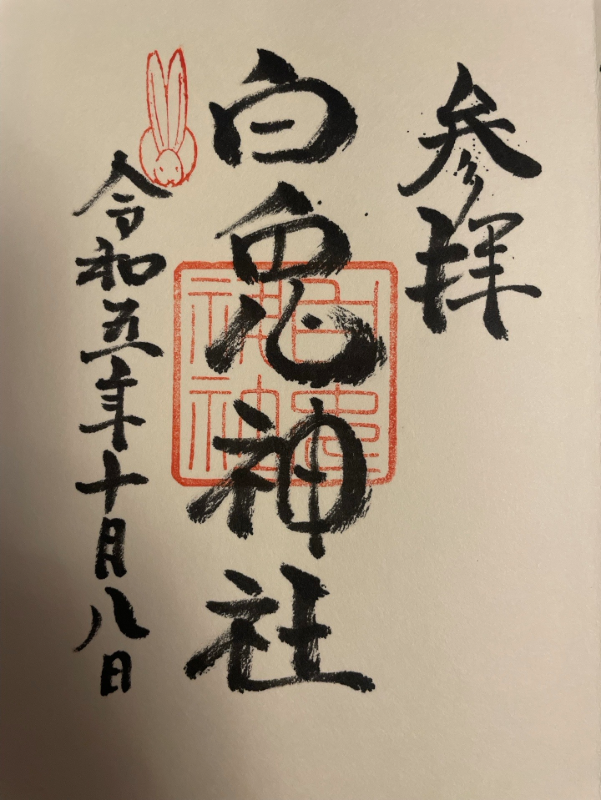 参拝
白兎神社
白兎神社
令和五年十月八日